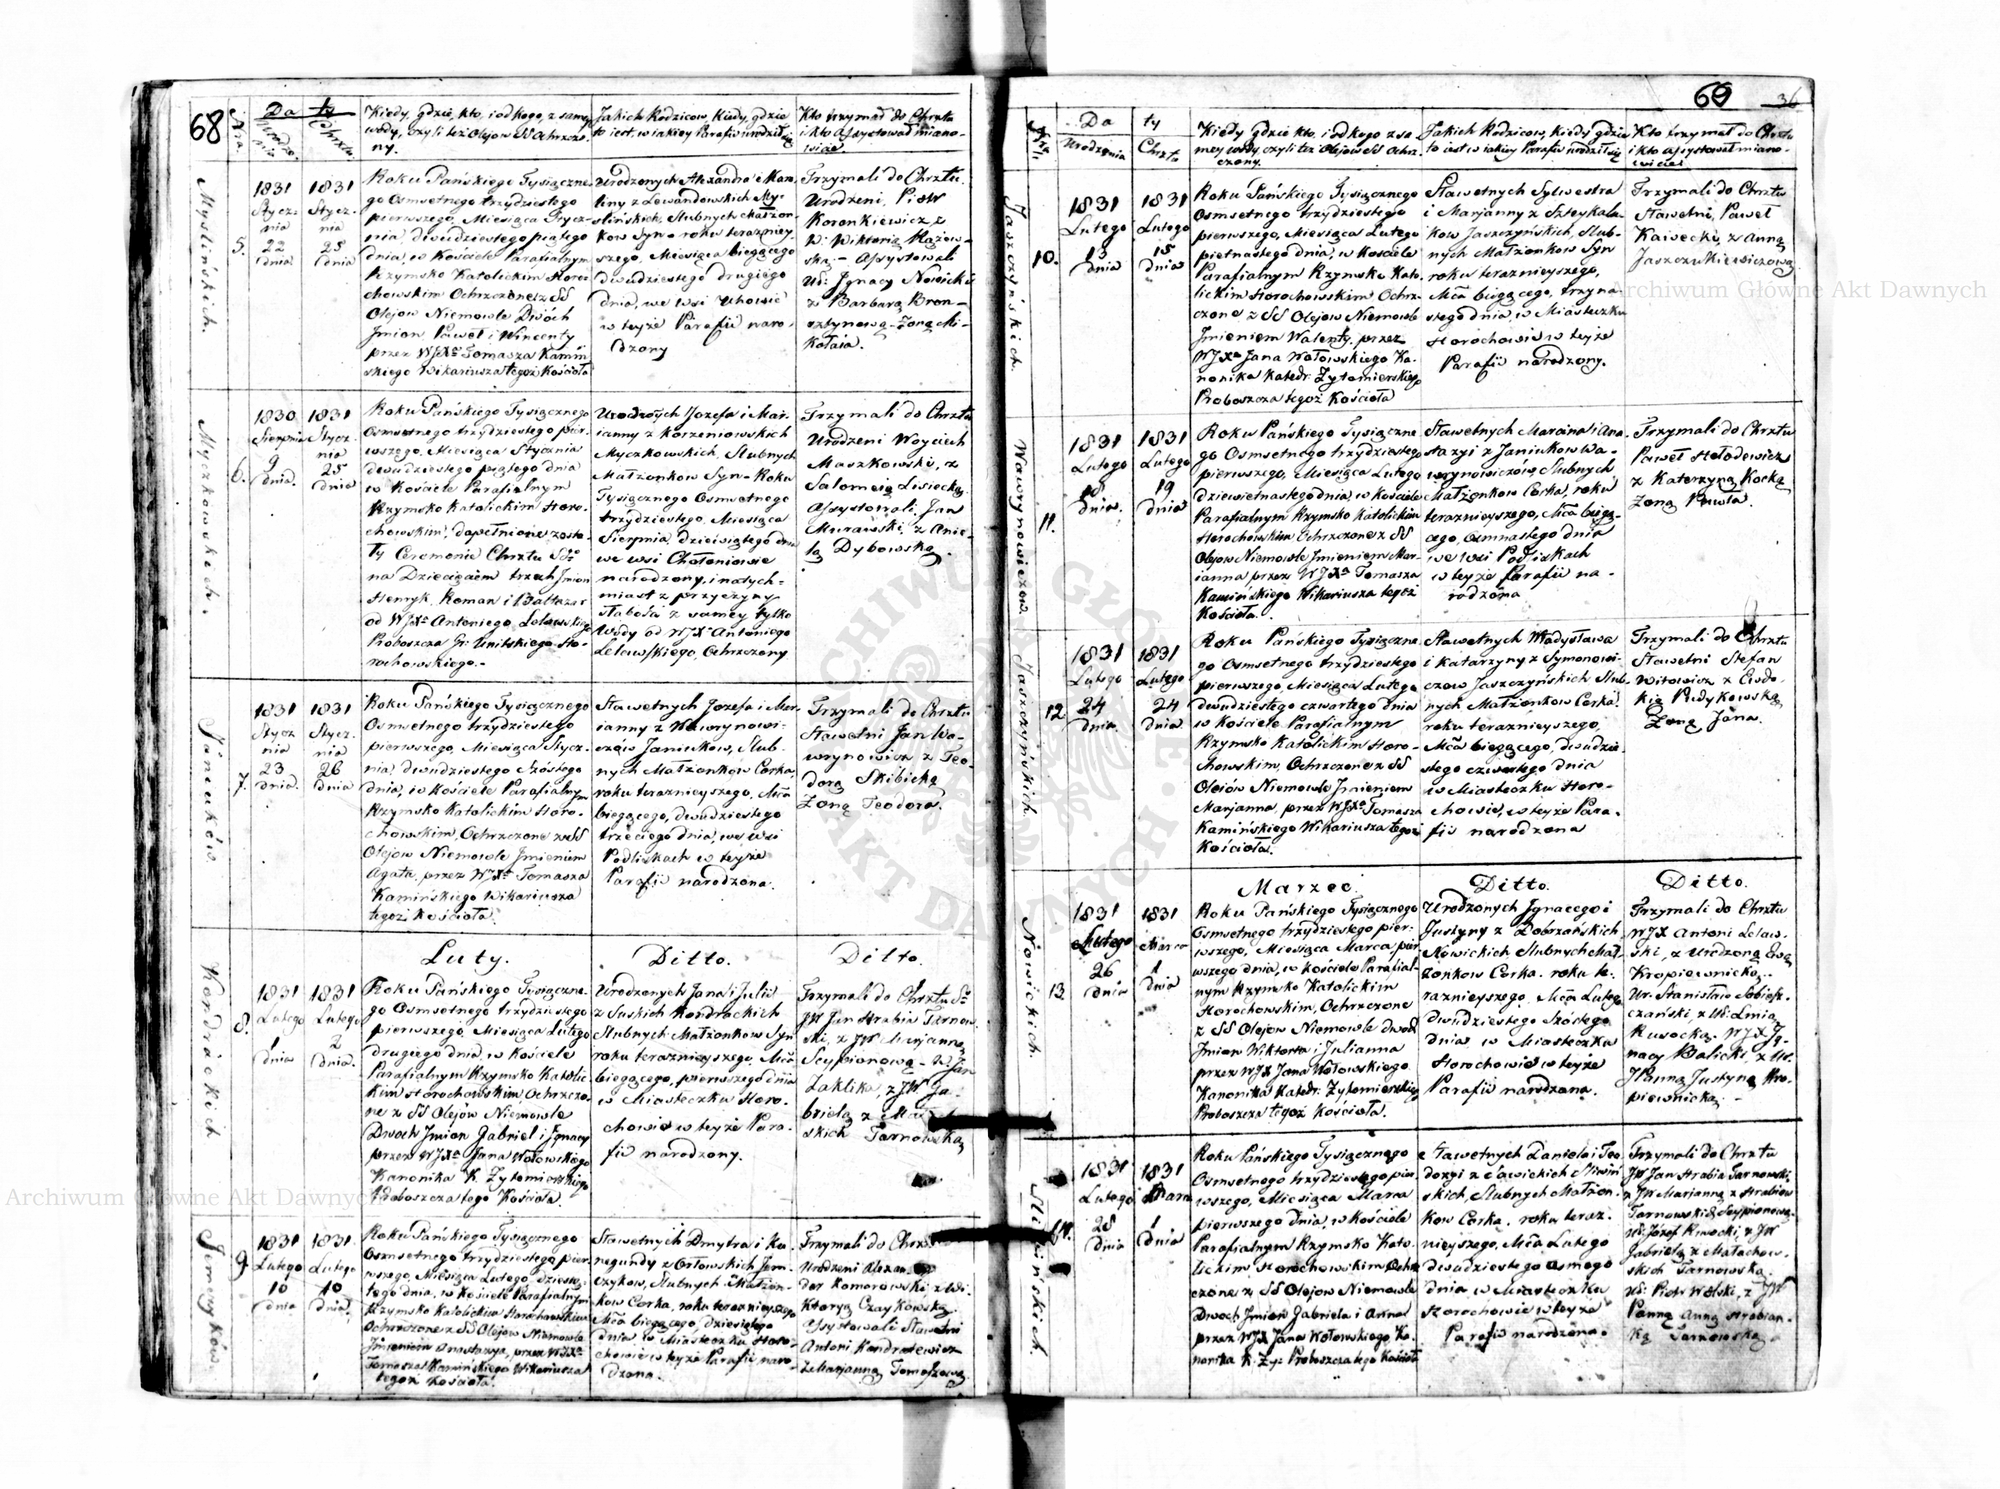 68
Nra.
Da ty
Urodzenia
Chrztu
Kiedy, gdzie, kto, i od kogo, z samey
wody, czyli też Olejow SS Ochrzczony.
Jakich Rodzicow, Kiedy, gdzie
to iest, w iakiey Parafii urodził się
Kto trzymał do Chrztu
i kto assystował miano-
wicie.
Myslińskich.
5.
1831
Stycz-
nia
22
dnia
1831
Stycz-
nia
25
dnia
Roku Pańskiego Tysiączne-
go Osmsetnego trzydziestego
pierwszego, Miesiąca Stycz-
nia, dwudziestego piątego
dnia, w Kościele Parafialnym
Rzymsko Katolickim Horo-
chowskim Ochrzczone z SS
Olejow Niemowle Dwóch
Jmion Paweł i Wincenty
przez WJXa Tomasza Kamiń
skiego Wikariusza tegoż Kościoła
Urodzonych Alexandra i Mar-
tiny z Lewandowskich My-
slińskich, Slubnych Małżon-
kow Syn - roku teraźniey-
szego, Miesiąca biegącego
dwudziestego drugiego
dnia, we wsi Uhowie
w teyże Parafii naro-
dzony
Trzymali do Chrztu
Urodzeni, Piotr
Koronkiewicz z
W: Wiktorią
ską - Assystowali
Ur: Jgnacy Nowicki
z Barbarą Bron-
Żoną Mi-
kołaia.
Myczkowskich.
6.
1830.
Sierpnia
9
dnia.
1831
Stycz-
nia
25
dnia
Roku Pańskiego Tysiącznego
Osmsetnego trzydziestego pier-
wszego, Miesiąca Stycznia
dwudziestego piątego dnia
w Kościele Parafialnym
Rzymsko Katolickim Horo-
chowskim, dopełnione zosta-
ły Ceremonie Chrztu Sgo
na Dziecięciem trzech Jmion
Henryk, Roman i Baltazar
od WJXa Antoniego Lelawskiego
Proboszcza Gr: Unitskiego Ho-
rochowskiego.-
Urodzonych Jozefa i Mar-
ianny z Korzeniowskich
Myczkowskich, Slubnych
Małżonkow Syn - Roku
Tysiącznego Osmsetnego
trzydziestego, Miesiąca
Sierpnia, dziewiątego dnia
we wsi Chołoniowie
narodzony, i natych-
miast z przyczyny
słabości z samey tylko
Wody od WJXa Antoniego
Lelawskiego, Ochrzczony
Trzymali do Chrztu
Urodzeni Woyciech
Maszkowski, z
Salomeią Lisiecką
Assystowali, Jan
Murawski, z Anie-
lą Dybowską.
Janiuków.
7.
1831
Stycz
nia
23
dnia.
1831
Stycz.
nia
26
dnia
Roku Pańskiego Tysiącznego
Osmsetnego trzydziestego
pierwszego, Miesiąca Stycz-
nia, dwudziestego Szóstego
dnia, w Kościele Parafialnym
Rzymsko Katolickim Horo-
chowskim, Ochrzczone z SS
Olejow Niemowle Jmieniem
Agata, przez WJXa Tomasza
Kamińskiego Wikariusza
tegoż Kościoła.
Sławetnych Jozefa i Mar-
ianny z Wawrynowi-
czów Janiukow, Slub-
nych Małżonkow Corka,
roku teraznieyszego, Mca
biegącego, dwudziestego
trzeciego dnia, we wsi
Podliskach w teyże
Parafii narodzona.
Trzymali do Chrztu
Sławetni Jan Wa-
wrynowicz z Teo-
dorą Skibicką
Żoną Teodora.
Luty.
Ditto.
Ditto.
Kondrackich
8.
1831
Lutego
1
dnia
1831
Lutego
2
dnia.
Roku Pańskiego Tysiączne-
go Osmsetnego trzydziestego
pierwszego, Miesiąca Lutego
drugiego dnia, w Kościele
Parafialnym Rzymsko Katolic-
kim Horochowskim, Ochrzczo-
ne z SS Olejów Niemowle
Dwoch Jmion Gabriel i Jgnacy
przez WJXa Jana Wołowskiego
Kanonika K. Żytomirskiego
Proboszcza tego Kościoła.
Urodzonych Jana i Julii
z Suskich Kondrackich
Slubnych Małżonkow Syn
roku teraznieyszego, Mca
biegącego, pierwszego dnia
w Miasteczku Horo-
chowie w teyże Para-
fii narodzony.
Trzymali do Chrztu So
JW Jan Hrabia Tarnow-
ski, z JW Marjanną
Scypionową - W Jan
Zaklika, z JW Ga-
brielą z
skich Tarnowską
Jemczyków.
9.
1831
Lutego
10
dnia
1831.
Lutego
10
dnia.
Roku Pańskiego Tysiącznego
Osmsetnego trzydziestego pier-
wszego, Miesiąca Lutego, dziesią-
tego dnia, w Kościele Parafialnym
Rzymsko Katolickim Horochowskim
Ochrzczone z SS Olejow Niemowle
Jmieniem Anastazya, przez WJXa
Tomasza Kamińskiego Wikariusza
tegoż Kościoła.
Sławetnych Dmytra i Ku-
negundy z Orłowskich Jem-
czykow, Slubnych Małżon-
kow Corka, roku teraznieyszego
Mca biegącego, dziesiątego
dnia w Miasteczku Horo-
chowie w teyże Parafii naro-
dzona.
Trzymali do Chrz
Urodzeni
der Komorowski z Wi-
ktoryą Czaykowską
Assystowali Sławetni
Antoni Kondratowicz
z Marjanną Tomaszową
69
36
Nra.
Da ty
Urodzenia
Chrztu
Kiedy gdzie kto, i od kogo z sa-
mey wody, czyli też Olejow SS Ochrz-
czony.
Jakich Rodzicow, Kiedy gdzie
to iest w iakiey Parafii urodził się
Kto trzymał do Chrztu
i kto assystował miano-
wicie.
Jaszczyńskich.
10.
1831
Lutego
13
dnia
1831
Lutego
15
dnia
Roku Pańskiego Tysiącznego
Osmsetnego trzydziestego
pierwszego, Miesiąca Lutego
piętnastego dnia, w Kościele
Parafialnym Rzymsko Kato-
lickim Horochowskim Ochrz-
czone z SS Olejow Niemowle
Jmieniem Walenty, przez
WJXa Jana Wołowskiego Ka-
nonika Katedr: Żytomierskiego
Proboszcza tegoż Kościoła
Sławetnych Sylwestra
i Marjanny z Szteykalu-
kow Jaszczyńskich, Slub-
nych Małżonkow Syn
roku teraznieyszego,
Mca biegącego, trzyna-
stego dnia, w Miasteczku
Horochowie w teyże
Parafii narodzony.
Trzymali do Chrztu
Sławetni, Paweł
Kaiwecki, z Anną
Jaszczukiewiczową
Wawrynowiczow.
11.
1831
Lutego
18
dnia.
1831
Lutego
19
dnia
Roku Pańskiego Tysiączne-
go Osmsetnego trzydziestego
pierwszego, Miesiąca Lutego
dziewietnastego dnia, w Kościele
Parafialnym Rzymsko Katolickim
Horochowskim Ochrzczone z SS
Olejow Niemowle Jmieniem Mar-
ianna przez WJXa Tomasza
Kamińskiego Wikariusza tegoż
Kościoła.
Sławetnych Marcina i Ana-
stazyi z Janiukow Wa-
wrynowiczów, Slubnych
Małżonkow Corka, roku
teraznieyszego, Mca biegą-
cego, osmnastego dnia
we wsi Podliskach
w teyże Parafii na-
rodzona
Trzymali do Chrztu
Paweł Hołodewicz
z Katerzyną Kocką
Żoną Pawła.
Jaszczyńskich.
12.
1831
Lutego
24
dnia.
1831
Lutego
24
dnia
Roku Pańskiego Tysiączne-
go Osmsetnego trzydziestego
pierwszego, Miesiąca Lutego
dwudziestego czwartego dnia
w Kościele Parafialnym
Rzymsko Katolickim Horo-
chowskim, Ochrzczone z SS
Olejów Niemowle Jmieniem
Marjanna, przez WJXa Tomasza
Kamińskiego Wikariusza tegoż
Kościoła.
Sławetnych Władysława
i Katarzyny z Symonowi-
czow Jaszczyńskich Slub-
nych Małżonkow Corka.
roku teraznieyszego,
Mca biegącego, dwudzie-
stego czwartego dnia
w Miasteczku Horo-
chowie, w teyże Para-
fii narodzona
Trzymali do Chrztu
Sławetni Stefan
Witowicz z Eudo-
kią Rudykowską
Żoną Jana.
Marzec.
Ditto.
Ditto.
Nowickich.
13.
1831
Lutego
26
dnia
1831
Marca
1
dnia
Roku Pańskiego Tysiącznego
Osmsetnego trzydziestego pier-
wszego, Miesiąca Marca pier-
wszego dnia, w Kościele Parafial-
nym Rzymsko Katolickim
Horochowskim, Ochrzczone
z SS Olejow Niemowle dwoch
Jmion Wiktorta i Julianna
przez WJX Jana Wołowskiego
Kanonika Katedr: Żytomierskiego
Proboszcza tegoż Kościoła.
Urodzonych Jgnacego i
Justyny z Dobrzańskich
Nowickich Slubnych Mał-
żonkow Corka. roku te-
raznieyszego, Mca Lutego
dwudziestego Szóstego
dnia w Miasteczku
Horochowie w teyże
Parafii narodzona.
Trzymali do Chrztu
WJX Antoni Lelaw-
ski, z Urodzoną Ewą
Kropiewnicką.
Ur. Stanisław Sobiesz-
czański, z Ur: Emią
Rusocką. WJX Jg-
nacy Balicki, z Ur.
Panną Justyną Kro-
piewnicką.
Sliwińskich.
14.
1831
Lutego
28
dnia
1831
Marca
1
dnia
Roku Pańskiego Tysiącznego
Osmsetnego trzydziestego pier-
wszego, Miesiąca Marca
pierwszego dnia, w Kościele
Parafialnym Rzymsko Kato-
lickim Horochowskim Ochrz-
czone z SS Olejow Niemowle
Dwoch Jmion Gabriela i Anna
przez WJX Jana Wołowskiego Ka-
nonika K. Żyt: Proboszcza tego Kościoła
Sławetnych Daniela i Teo-
dozyi z Sawickich Sliwiń-
skich, Slubnych Małżon-
kow Corka. roku teraz-
nieyszego, Mca Lutego
dwudziestego osmego
dnia w Miasteczku
Horochowie w teyże
Parafii narodzona.
Trzymali do Chrztu
JW Jan Hrabia Tarnowski,
z JW Marjanną z Hrabiow
Tarnowskich Scypionową.
Ur. Józef z JW
Gabrielą z Małachow-
skich Tarnowską.
Ur: Piotr Wolski, z JW
Panną Anną Hrabian-
ką Tarnowską
Archiwum Główne Akt Dawnych
Archiwum Główne Akt Dawnych
ARCHIWUM GŁÓWNE AKT DAWNYCH